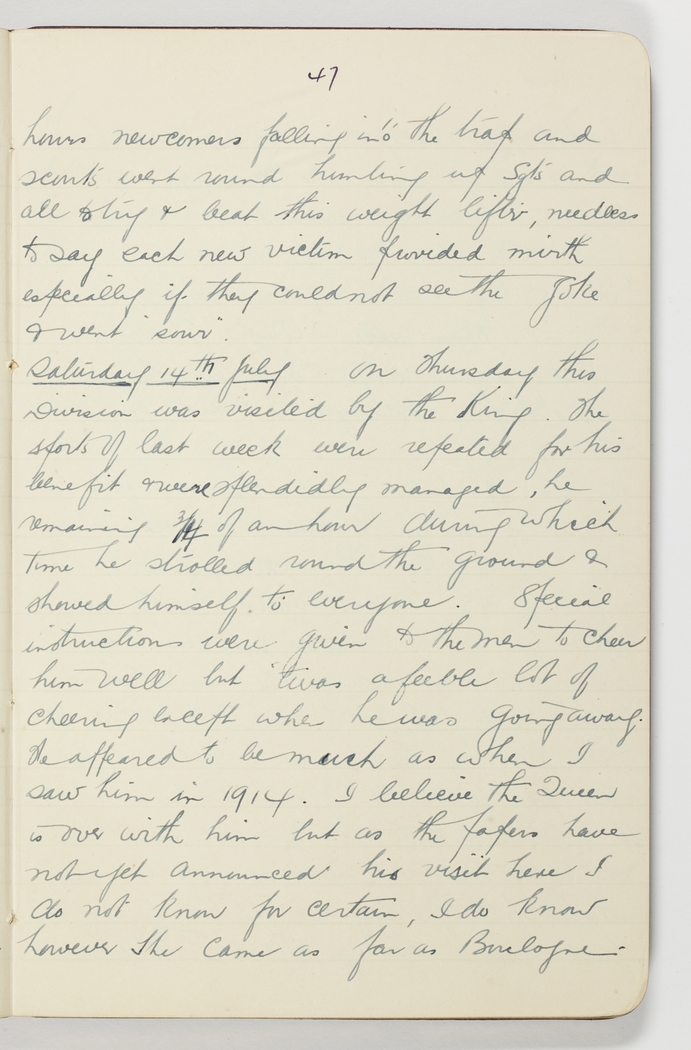 47
hours newcomers falling into the trap and
scouts went round hunting up Sgts and
all to try & beat this weight lifter, needless
to say each new victim provided mirth
especially if they could not see the joke
& went "sour".
Saturday 14th July on Thursday this
Division was visited by the King. The
sports of last week were repeated for his
benefit & were splendidly managed, he
remaining 3/4 of an hour during which
time he strolled round the ground &
showed himself to everyone. Special
instructions were given to the men to cheer
him well but 'twas a feeble lot of
cheering except when he was going away.
He appeared to be much as when I
saw him in 1914. I believe the Queen
is over with him but as the papers have
not yet announced his visit here I
do not know for certain, I do know
however she came as far as Boulogne.